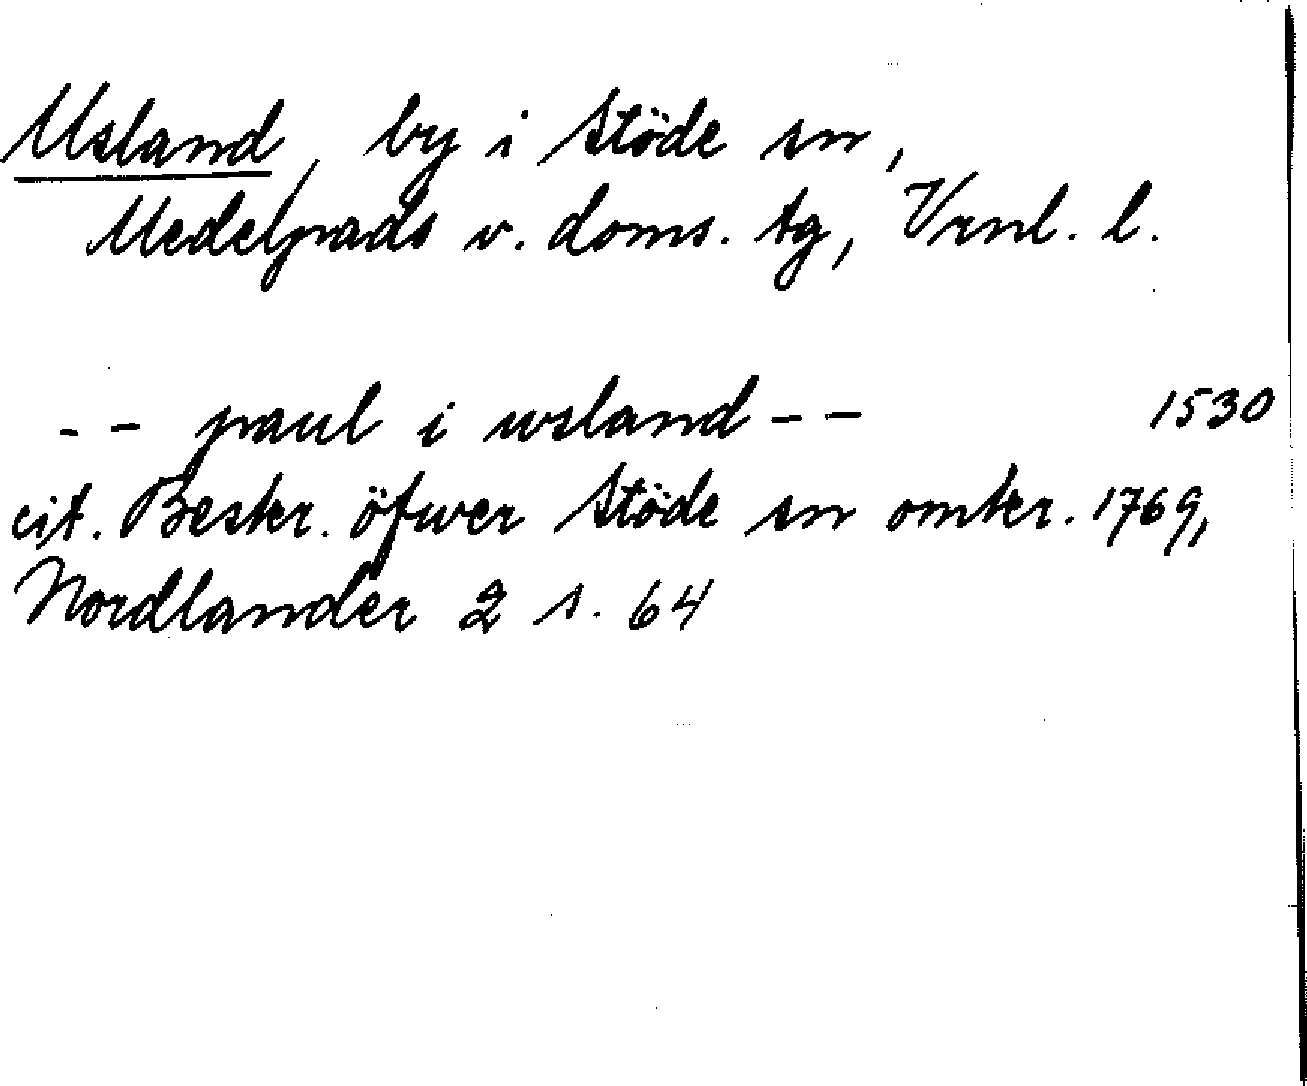 Usland, by i Stöde sn,
Medelpads v. doms. tg, Vrnl. l.
-- paul i wsland -- 1530
cit. Beskr. öfwer Stöde sn omkr. 1769,
Nordlander 2 s. 64